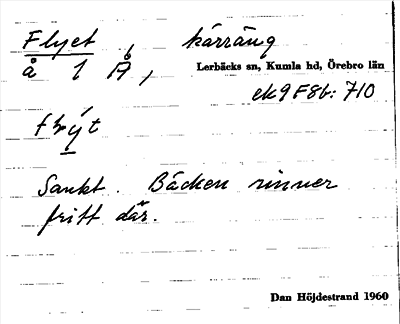 Flyet, kärräng
å 1 Å,
Lerbäcks sn, Kumla hd, Örebro län
ek 9F8b: 710
flý̱t
Sankt. Bäcken rinner
fritt där.
Dan Höjdestrand 1960